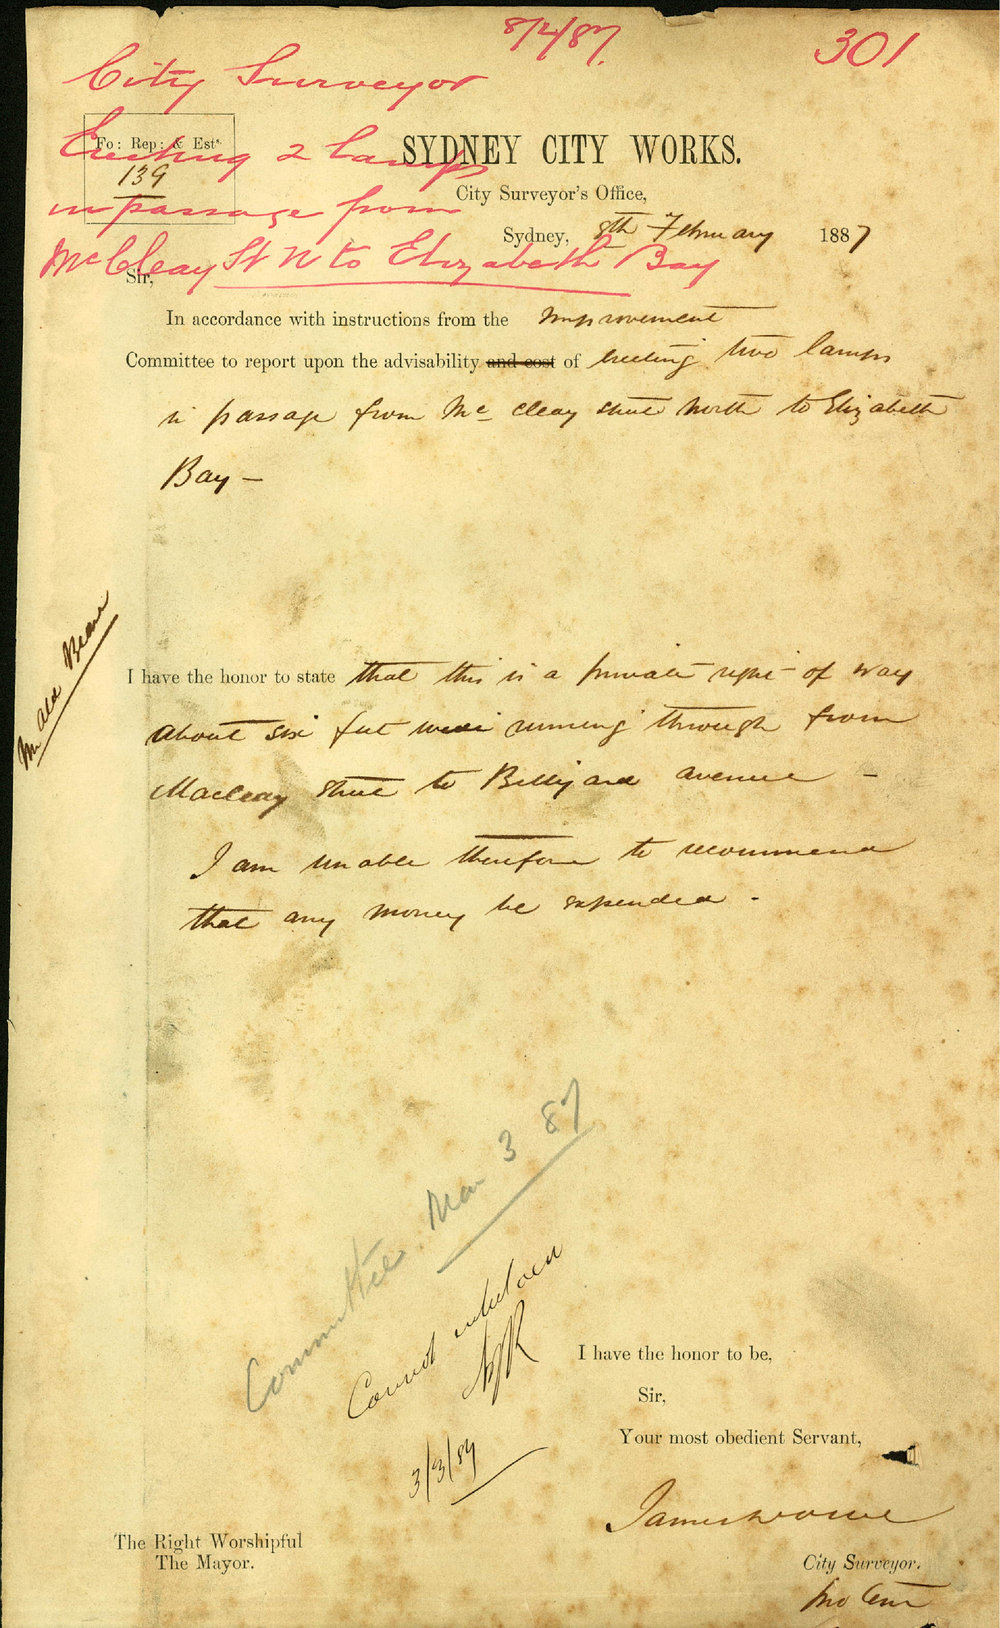 8/2/87.
301
City Surveyor
Erecting 2 Lamps
in passage from
McCleay St N to Elizabeth Bay
Fo: Rep: & Ests
139
SYDNEY CITY WORKS.
City Surveyor's Office,
Sydney, 8th February 1887
Sir,
In accordance with instructions from the Improvement
Committee to report upon the advisability and cost of Erecting two lamps
in passage from Mc Cleay Street North to Elizabeth
Bay —
Mr Ald Beare
I have the honor to state that this is a private right of way
about six feet wide running through from
Macleay Street to Billyard avenue —
I am unable therefore to recommend
that any money be expended -
Committee Mar 3 87
Cannot
3/3/87
I have the honor to be,
Sir,
Your most obedient Servant,
The Right Worshipful
The Mayor.
City Surveyor.